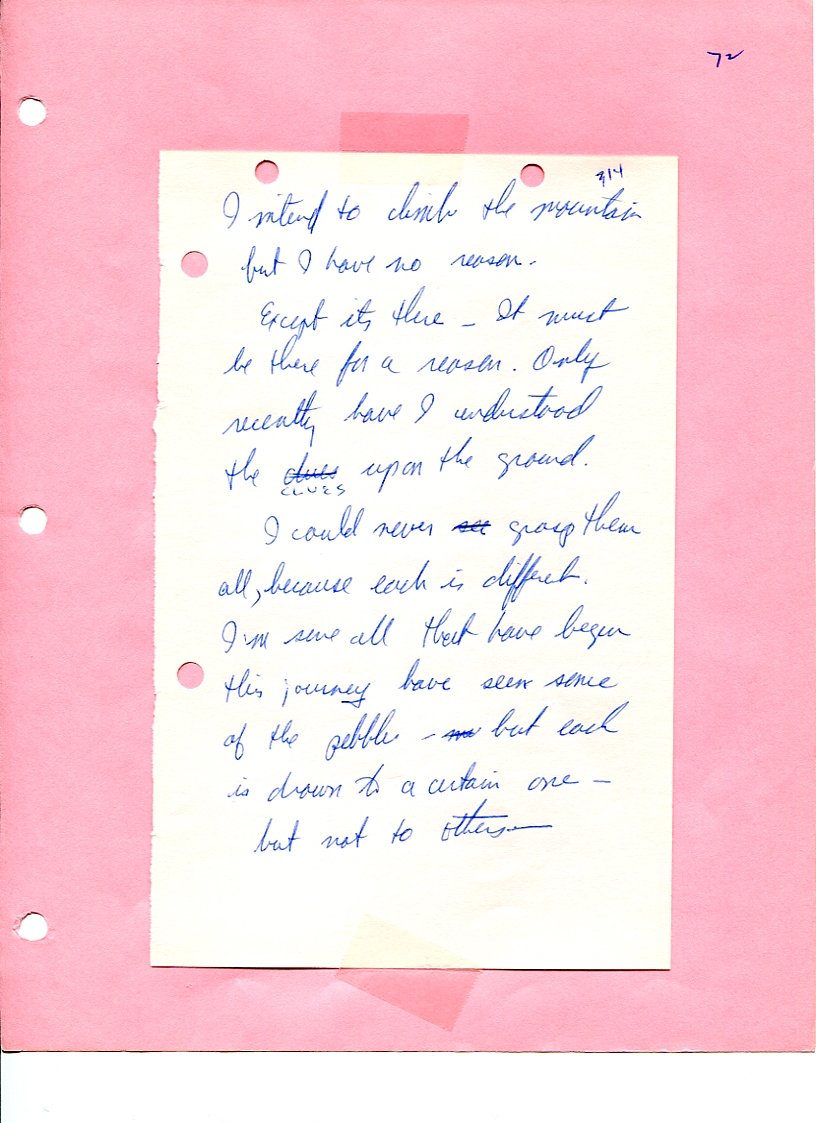 72
314
I intend to climb the mountain
but I have no reason.
Except its there – It must
be there for a reason. Only
recently have I understood
the clues upon the ground.
CLUES
I could never see grasp them
all, because each is different.
I'm sure all that have begun
this journey have seen some
of the pebble – but each
is drawn to a certain one –
but not to others –